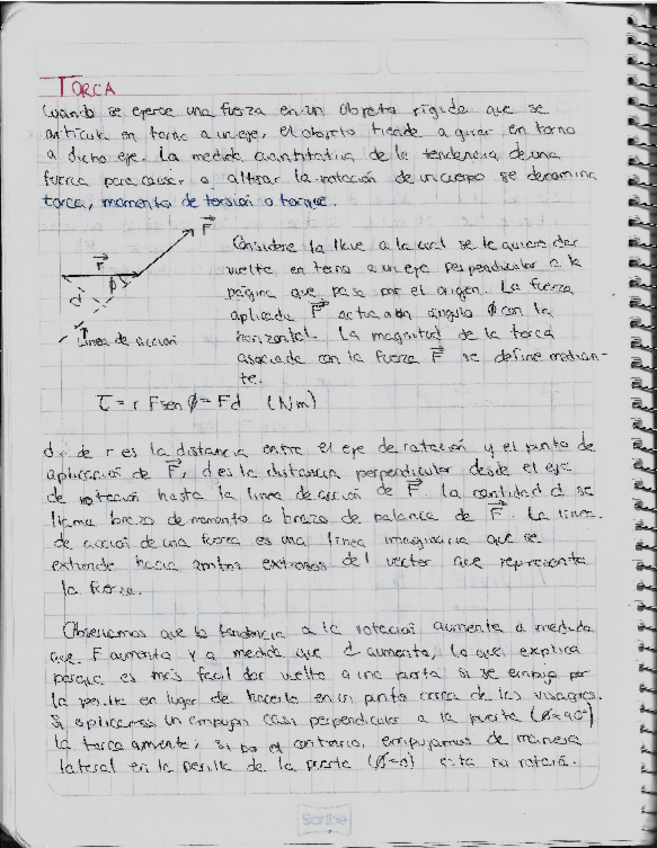 TORCA
Cuando se ejerce una fuerza en un objeto rígido que se
articula en torno a un eje, el objeto tiende a girar en torno
a dicho eje. La medida cuantitativa de la tendencia de una
fuerza para causar o alterar la rotación de un cuerpo se denomina
torca, momento de torsión o torque.
F
r
ϕ
d
Línea de acción
Considere la llave a la cual se le quiere dar
vuelta en torno a un eje perpendicular a la
página que pasa por el origen. La fuerza
aplicada F actua a un ángulo ϕ con la
horizontal. La magnitud de la torca
asociada con la fuerza F se define median-
te.
τ = r F sen ϕ = Fd (Nm)
de r es la distancia entre el eje de rotación y el punto de
aplicación de F, d es la distancia perpendicular desde el eje
de rotación hasta la línea de acción de F. La cantidad d se
llama brazo de momento o brazo de palanca de F. La línea
de acción de una fuerza es una línea imaginaria que se
extiende hacia ambos extremos del vector que representa
la fuerza.
Observamos que la tendencia a la rotación aumenta a medida
que F aumenta y a medida que d aumenta, lo que explica
porque es más fácil dar vuelta a una puerta si se empuja por
la perilla en lugar de hacerlo en un punto cerca de las visagras.
Si aplicaras un empujon casi perpendicular a la puerta (ϕ=90°)
la torca aumenta; si por el contrario, empujamos de manera
lateral en la perilla de la puerta (ϕ=0) esta no rotará.
Scribe